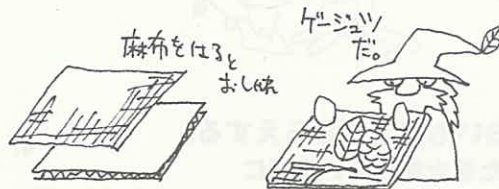 麻布をはると
おしゃれ
ゲージュツ
だ。